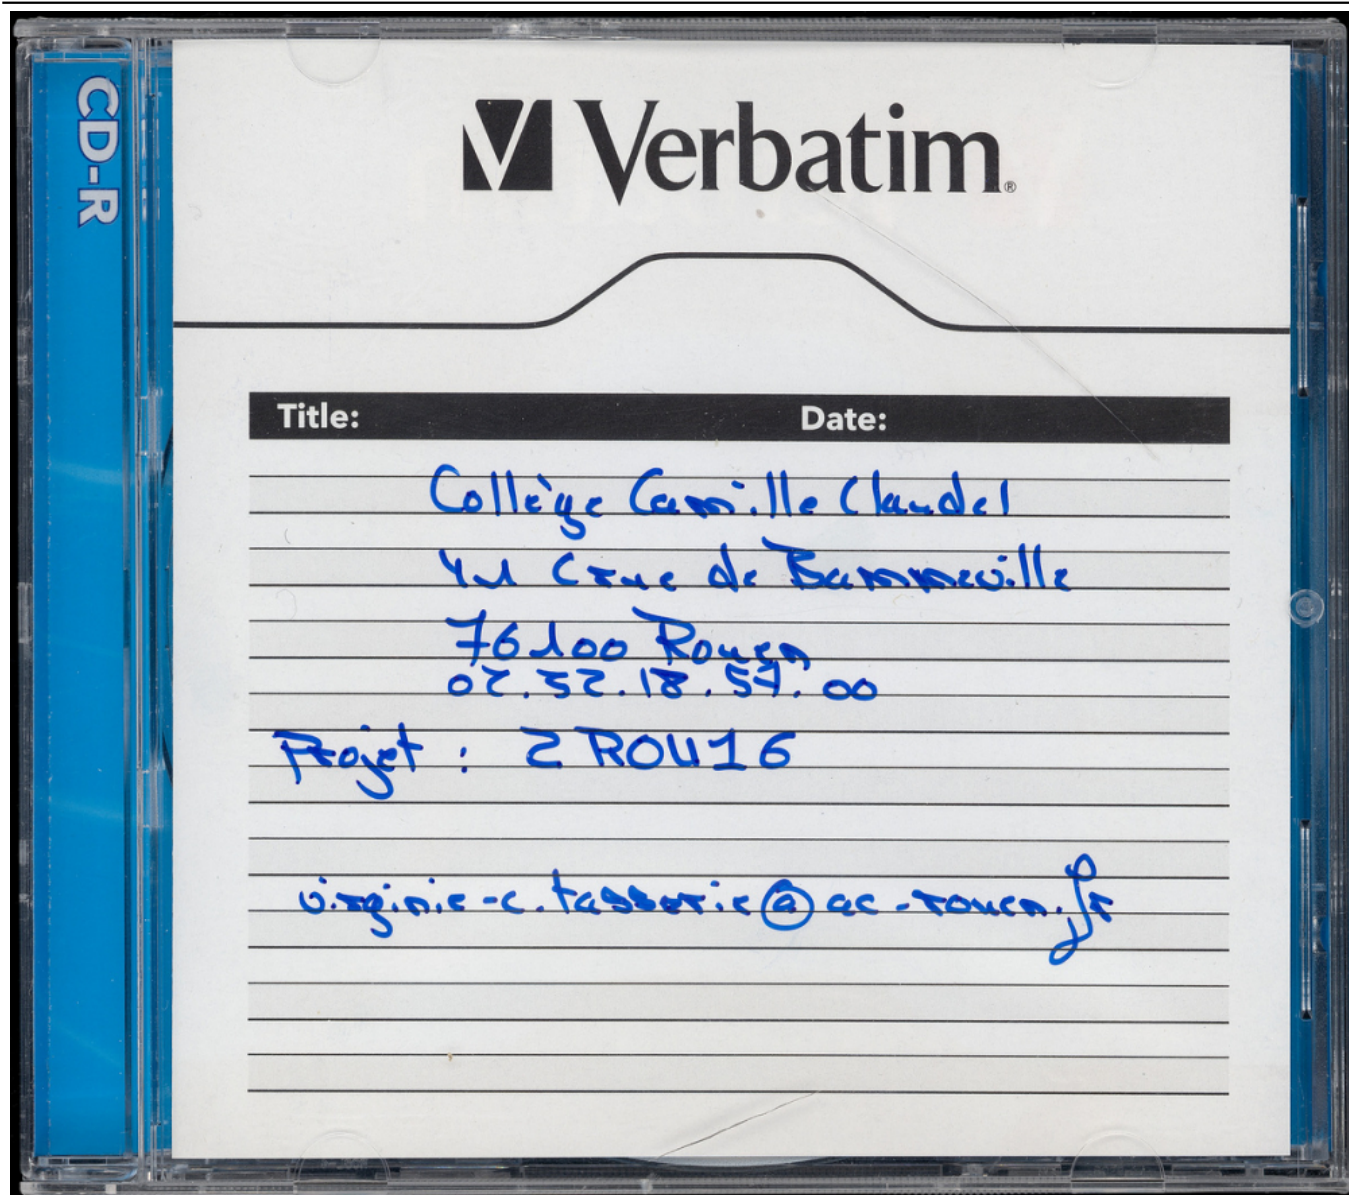 CD-R
Verbatim®
Title: Date:
Collège Camille Claudel
41 C rue de Bammeville
76100 Rouen
02.32.18.57.00
Projet : 2ROU16
virginie-c.tasserie@ac-rouen.fr